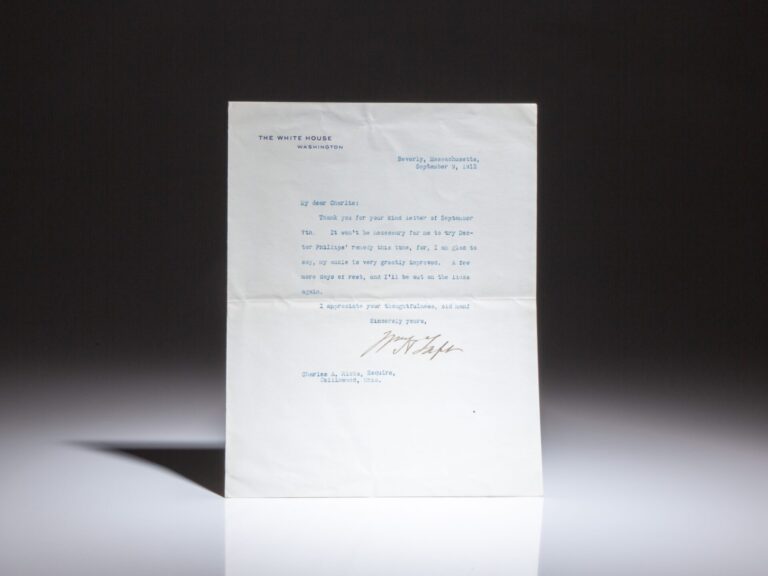 THE WHITE HOUSE
WASHINGTON
Beverly, Massachusetts,
September 9, 1912
My dear Charlie:
Thank you for your kind letter of September
7th. It won't be necessary for me to try Doc-
tor Phillips' remedy this time, for, I am glad to
say, my ankle is very greatly improved. A few
more days of rest, and I'll be out on the links
again.
I appreciate your thoughtfulness, old man!
Sincerely yours,
Wm H Taft
Charles A. Esquire,
Ohio.